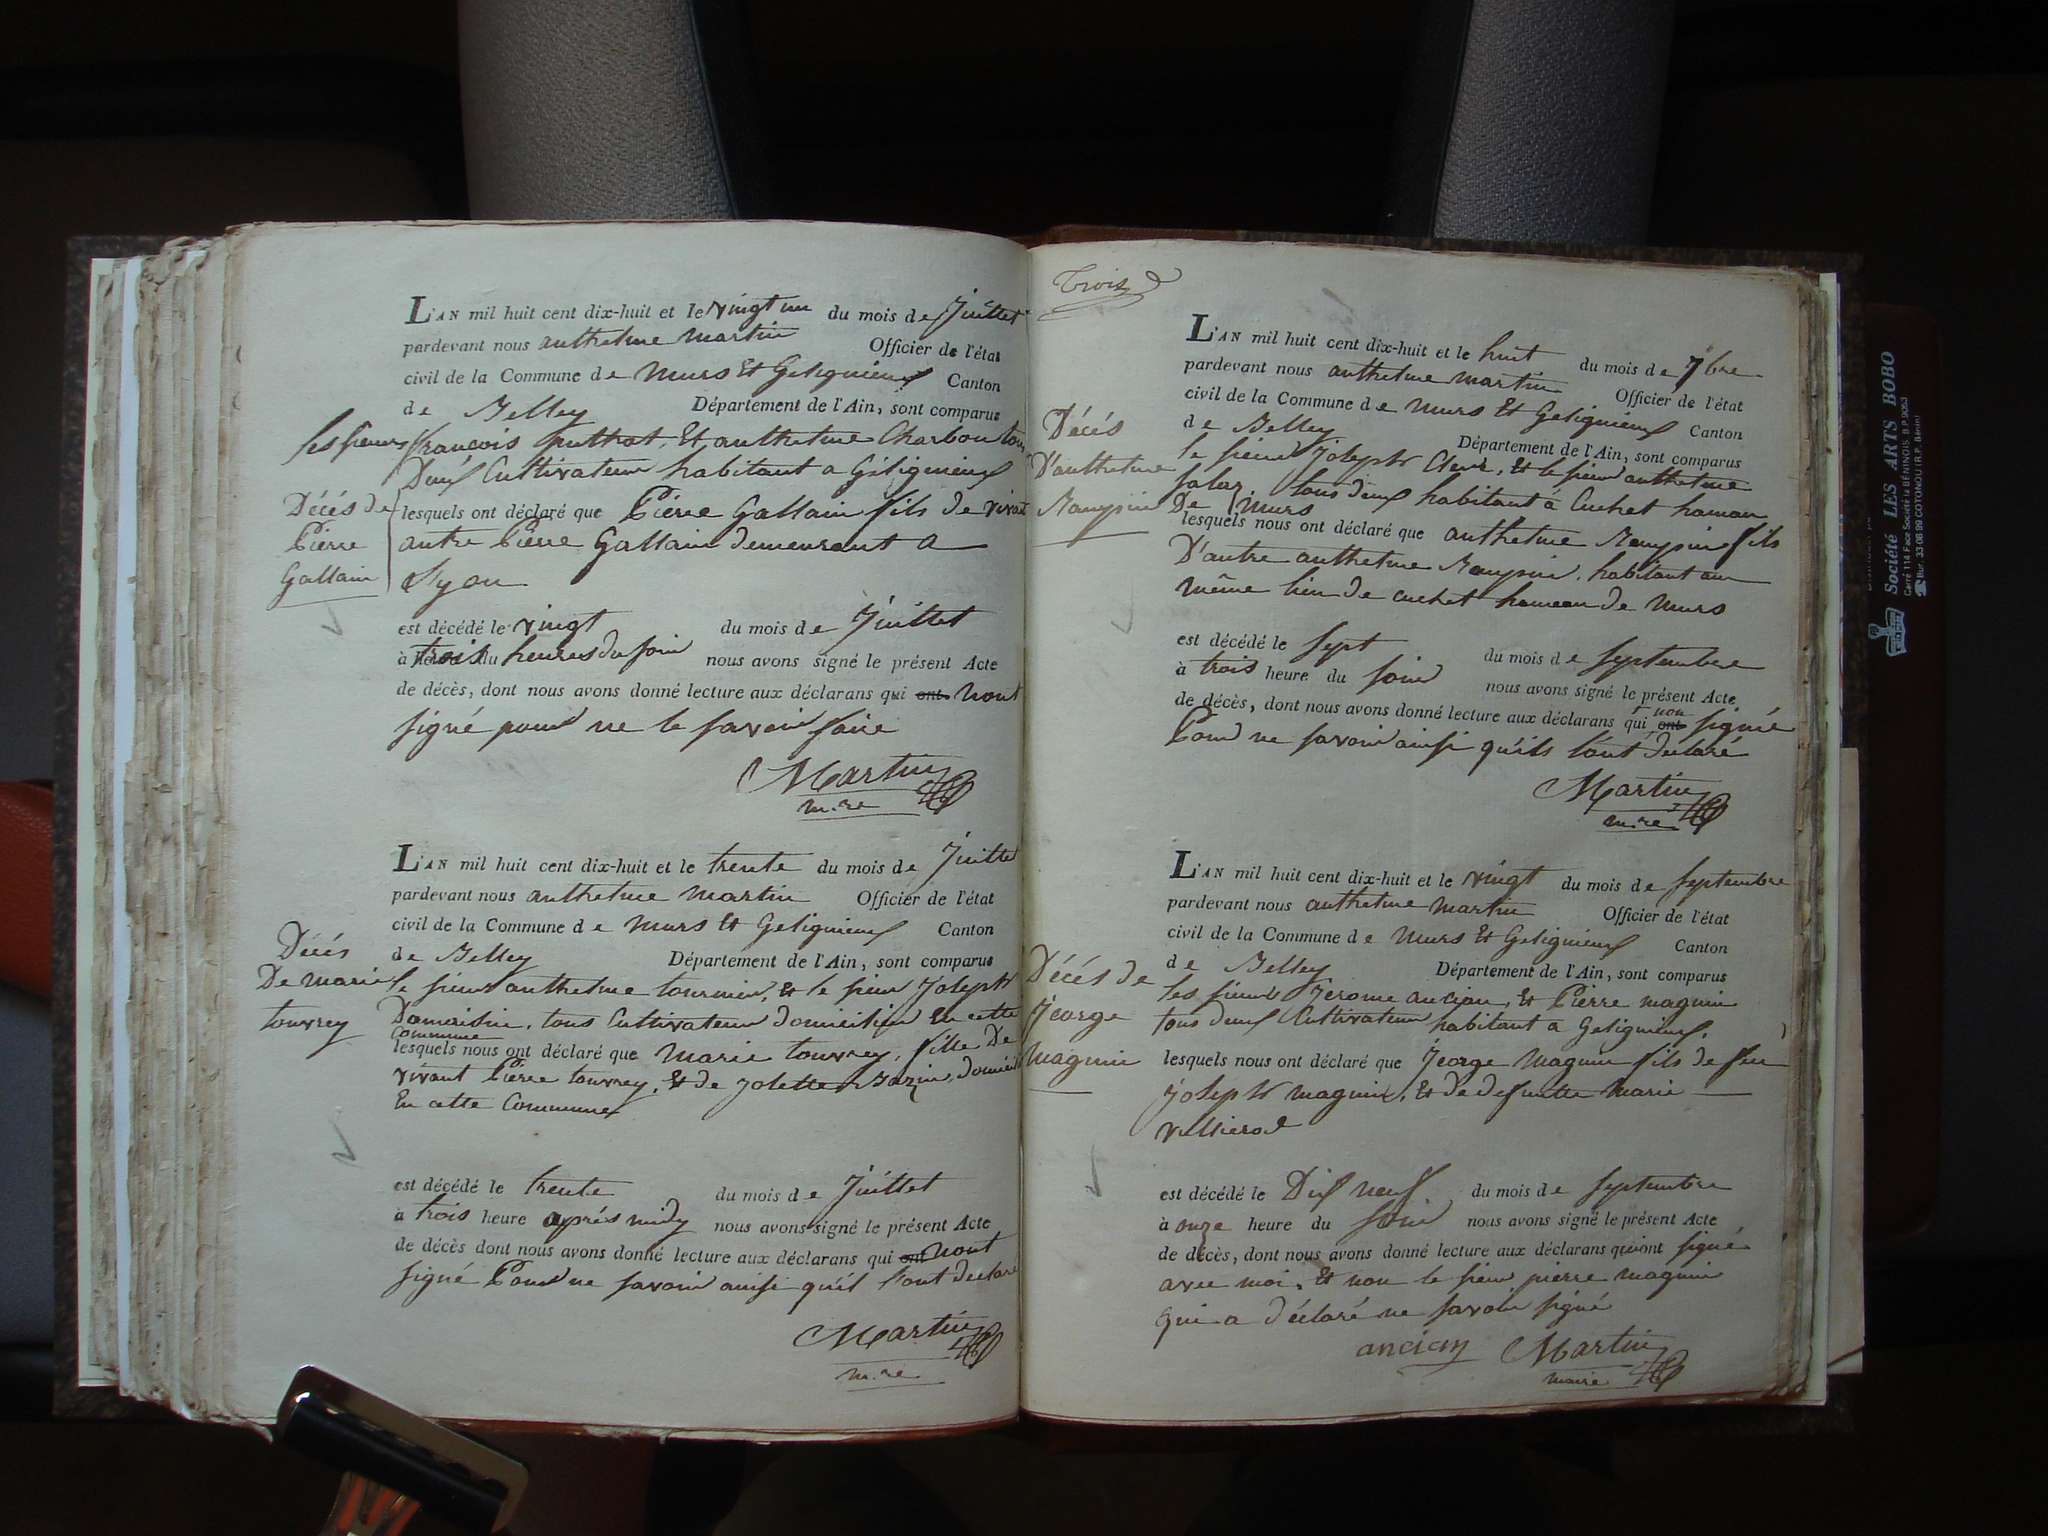 L'AN mil huit cent dix-huit et le vingt un du mois de Juillet
pardevant nous anthelme martin Officier de l'état
civil de la Commune de Murs Et Gelignieux Canton
de Belley Département de l'Ain, sont comparus
les sieurs francois Et anthelme Charbon
Deux Cultivateurs habitant a Gélignieux
Décés de
Pierre
Gallain
lesquels ont déclaré que Pierre Gallain fils de vivant
autre Pierre Gallain demeurant a
Lyon
est décédé le vingt du mois de Juillet
à trois heures du soir nous avons signé le présent Acte
de décès, dont nous avons donné lecture aux déclarans qui ont nont
signé pour ne le savoir faire
Martin
m.re
L'AN mil huit cent dix-huit et le trente du mois de Juillet
pardevant nous anthelme martin Officier de l'état
civil de la Commune de Murs Et Gelignieux Canton
de Belley Département de l'Ain, sont comparus
Décés
De marie
tourrey
le sieur anthelme tournier, Et le sieur Joseph
Damaisin, tous Cultivateur domicilier En cette
Commune
lesquels nous ont déclaré que Marie tourrey, fille De
vivant Pierre tourrey, Et de Josette domicilié
En cette Commune
est décédé le trente du mois de Juillet
à trois heure aprés midy nous avons signé le présent Acte
de décès dont nous avons donné lecture aux déclarans qui ont nont
signé Pour ne savoir ainsi qu'il l'ont declaré
Martin
m.re
Trois
L'AN mil huit cent dix-huit et le huit du mois de 7bre
pardevant nous anthelme martin Officier de l'état
civil de la Commune de Murs Et Gelignieux Canton
de Belley Département de l'Ain, sont comparus
Décés
D'anthelme
le sieur Joseph Et le sieur anthelme
tous deux habitant à Cuchet hamau
De murs
lesquels nous ont déclaré que anthelme fils
D'autre anthelme habitant au
même lieu de cuchet hameau de Murs
est décédé le sept du mois de septembre
à trois heure du soir nous avons signé le présent Acte
de décès, dont nous avons donné lecture aux déclarans qui non ont signé
Pour ne savoir ainsi qu'ils l'ont declaré
Martin
m.re
L'AN mil huit cent dix-huit et le vingt du mois de septembre
pardevant nous anthelme martin Officier de l'état
civil de la Commune de Murs Et Gelignieux Canton
de Belley Département de l'Ain, sont comparus
Décés de
Jeorge
magnin
les sieurs Jerome ancian, Et Pierre magnin
tous deux Cultivateur habitant a Gelignieux.
lesquels nous ont déclaré que Jeorge Magnin fils de feu
Joseph magnin, Et de defunte Marie
est décédé le Dix neuf du mois de septembre
à onze heure du soir nous avons signé le présent Acte
de décès, dont nous avons donné lecture aux déclarans qui ont signé
avec moi, Et non le sieur pierre magnin
qui a déclaré ne savoir signé
ancian Martin
maire
Société LES ARTS BOBO